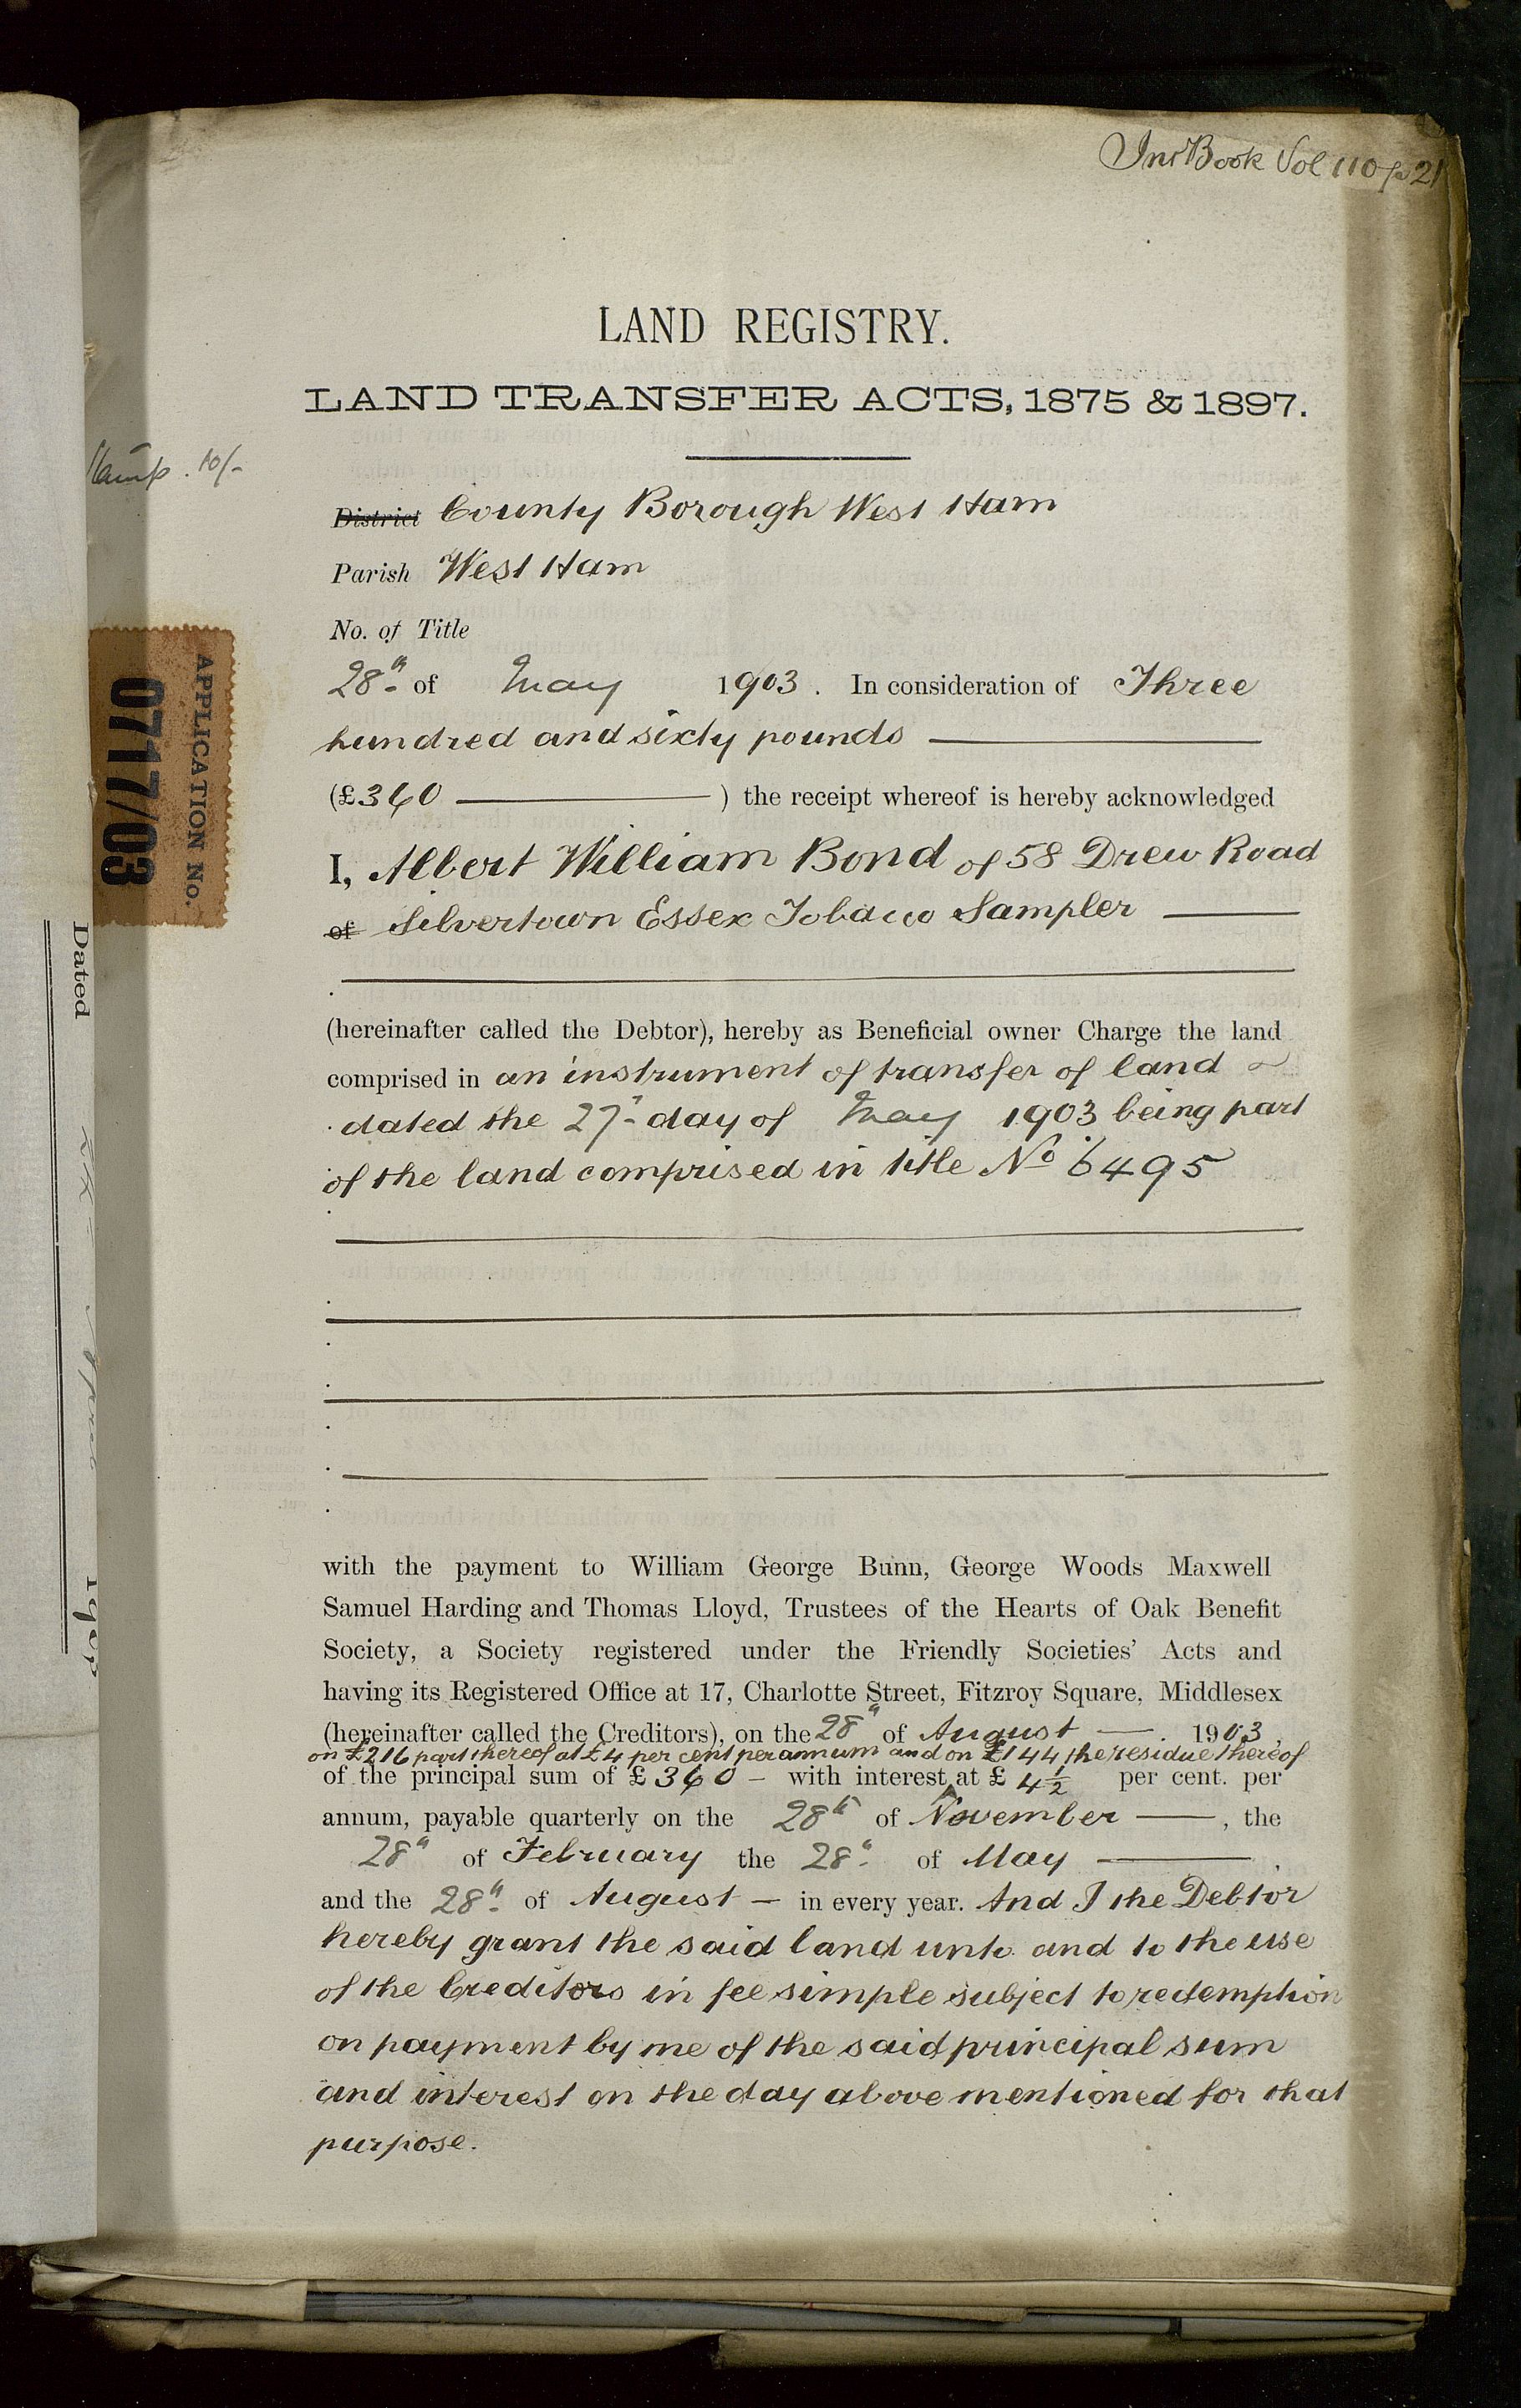 InsBook Vol 110 p 21
LAND REGISTRY.
LAND TRANSFER ACTS, 1875 & 1897.
Stamp. 10/-
District County Borough West Ham
Parish West Ham
No. of Title
28th of May 1903. In consideration of Three
hundred and sixty pounds
(£360 ) the receipt whereof is hereby acknowledged
I, Albert William Bond of 58 Drew Road
of Silvertown Essex Tobacco Sampler
APPLICATION No.
0717/03
(hereinafter called the Debtor), hereby as Beneficial owner Charge the land
comprised in an instrument of transfer of land
dated the 27th day of May 1903 being part
of the land comprised in title No 6495
with the payment to William George Bunn, George Woods Maxwell
Samuel Harding and Thomas Lloyd, Trustees of the Hearts of Oak Benefit
Society, a Society registered under the Friendly Societies' Acts and
having its Registered Office at 17, Charlotte Street, Fitzroy Square, Middlesex
(hereinafter called the Creditors), on the 28th of August 1903,
on £216 part thereof at £4 per cent per annum and on £144 the residue thereof
of the principal sum of £360 – with interest at £ 4½ per cent. per
annum, payable quarterly on the 28th of November , the
28th of February the 28th of May ,
and the 28th of August – in every year. And I the Debtor
hereby grant the said land unto and to the use
of the Creditors in fee simple subject to redemption
on payment by me of the said principal sum
and interest on the day above mentioned for that
purpose.
Dated